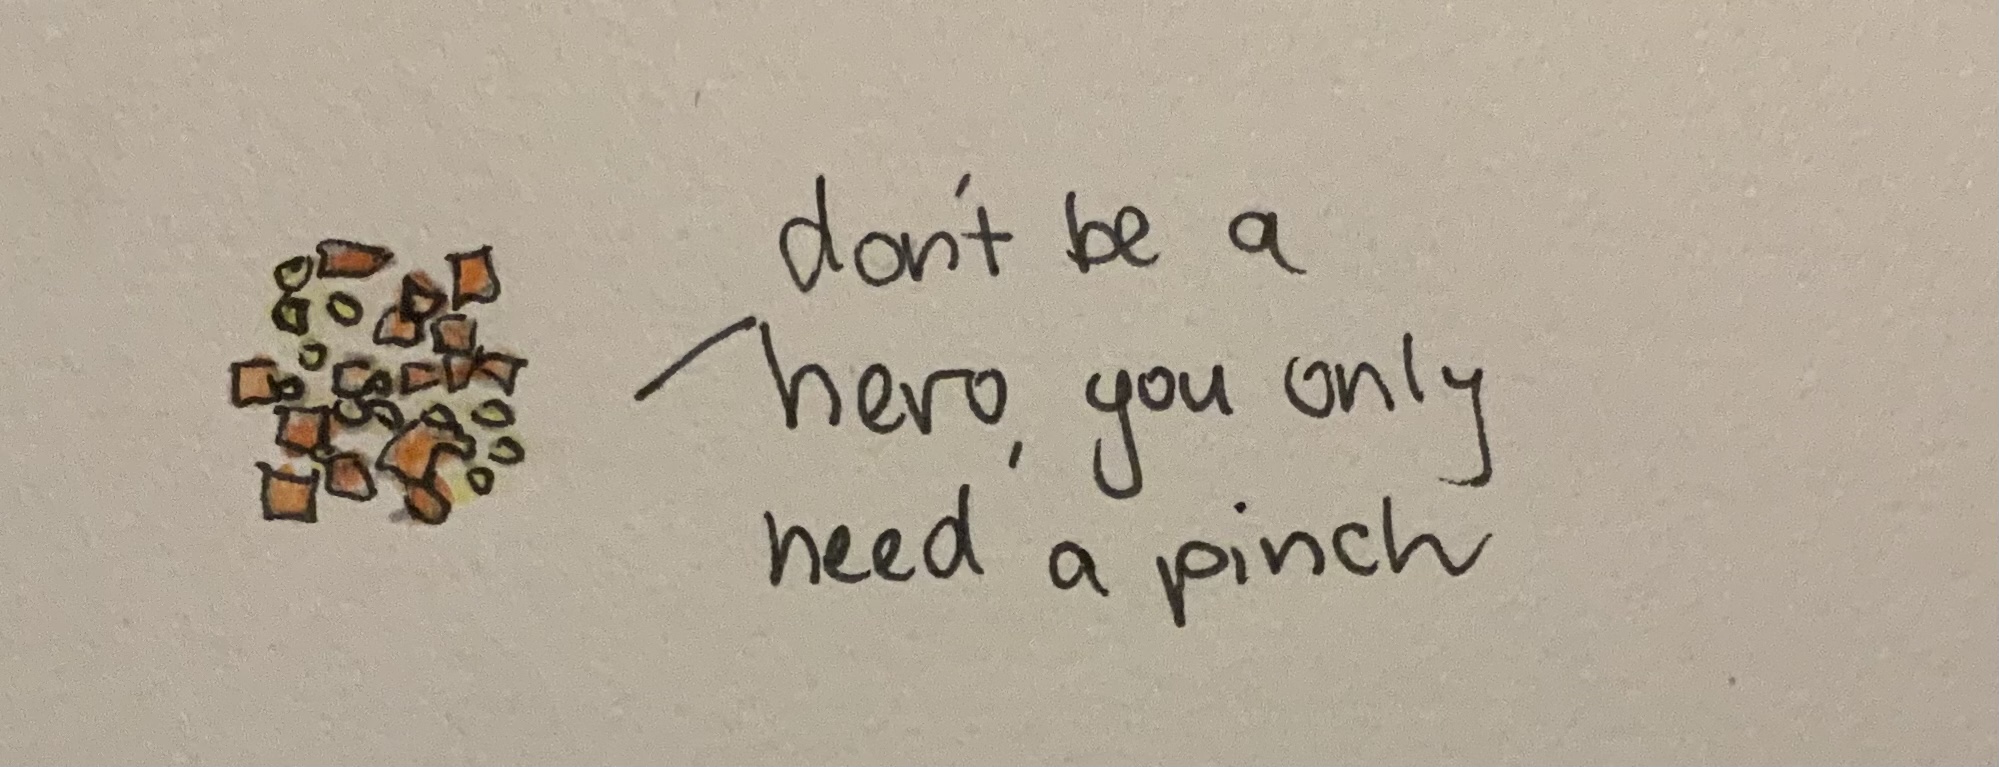 don't be a
hero, you only
need a pinch